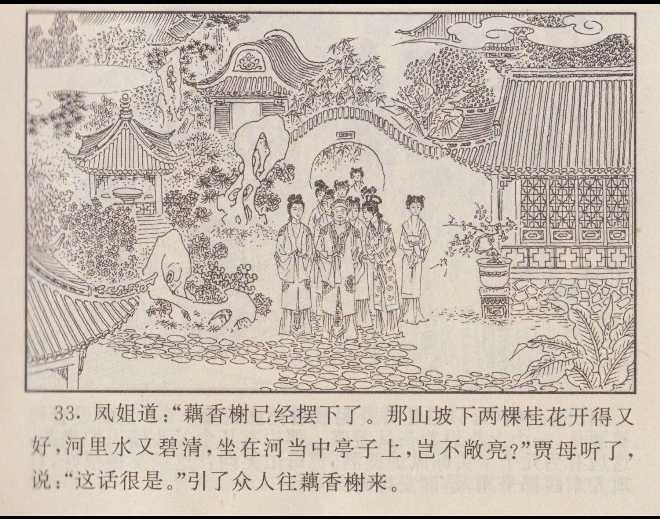 33. 凤姐道：“藕香榭已经摆下了。那山坡下两棵桂花开得又
好，河里水又碧清，坐在河当中亭子上，岂不敞亮？”贾母听了，
说：“这话很是。”引了众人往藕香榭来。